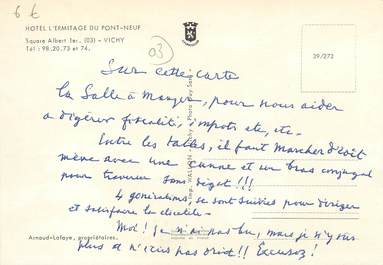 6 €
HOTEL L'ERMITAGE DU PONT-NEUF
Square Albert 1er. (03) - VICHY
Tél : 98.20.73 et 74.
03
39/272
Sur cette carte
la Salle à Manger, pour nous aider
a digérer fiscalité, impots etc, etc -
Entre les tables, il faut marcher droit
même avec une canne et un bras conjugal
pour traverser sans dégat !!!
4 générations, se sont suivies pour diriger
et satisfaire la clientèle -
Moi ! je n'ai pas bu, mais je n'y vois
plus et n'écris pas droit !! Excusez !
Arnaud-Lafaye, propriétaires.
Imp. WALLON Vichy - Photo